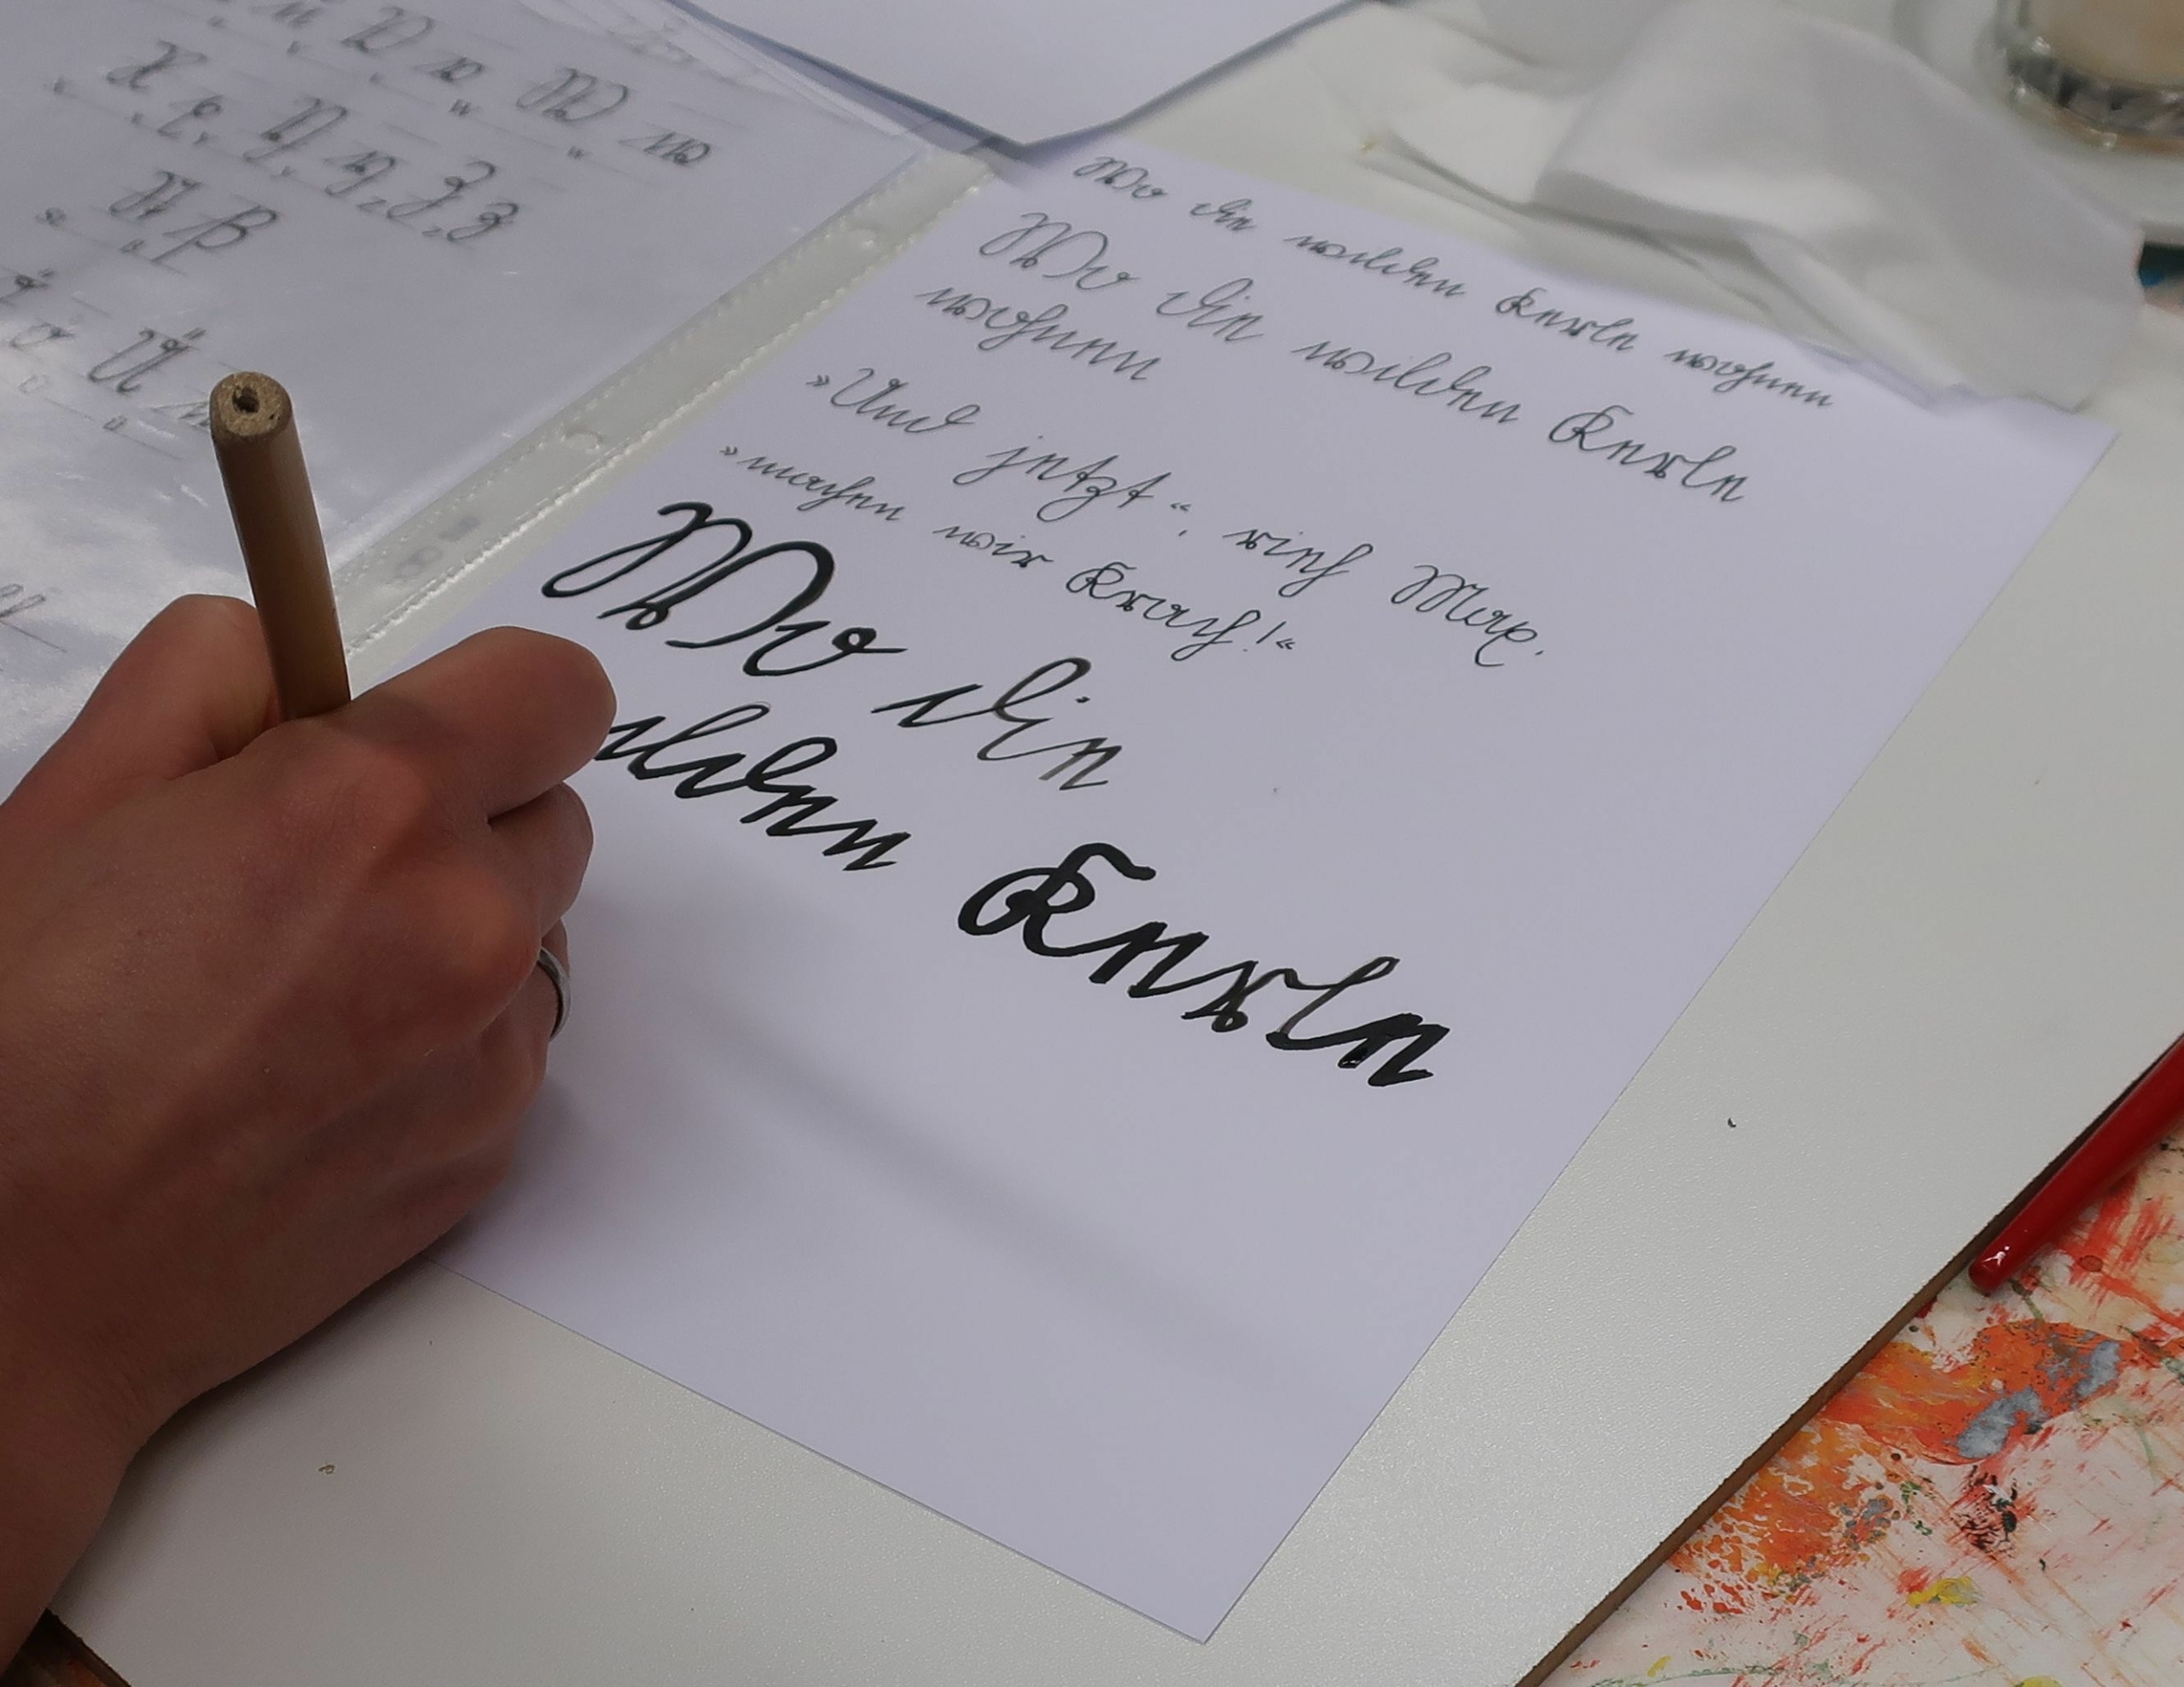 V v W w
X x Y y Z z
ß
ö Ü
Wo die wilden Kerle wohnen
Wo die wilden Kerle
wohnen
»Und jetzt«, rief Max,
»machen wir Krach!«
Wo die
ilden Kerle